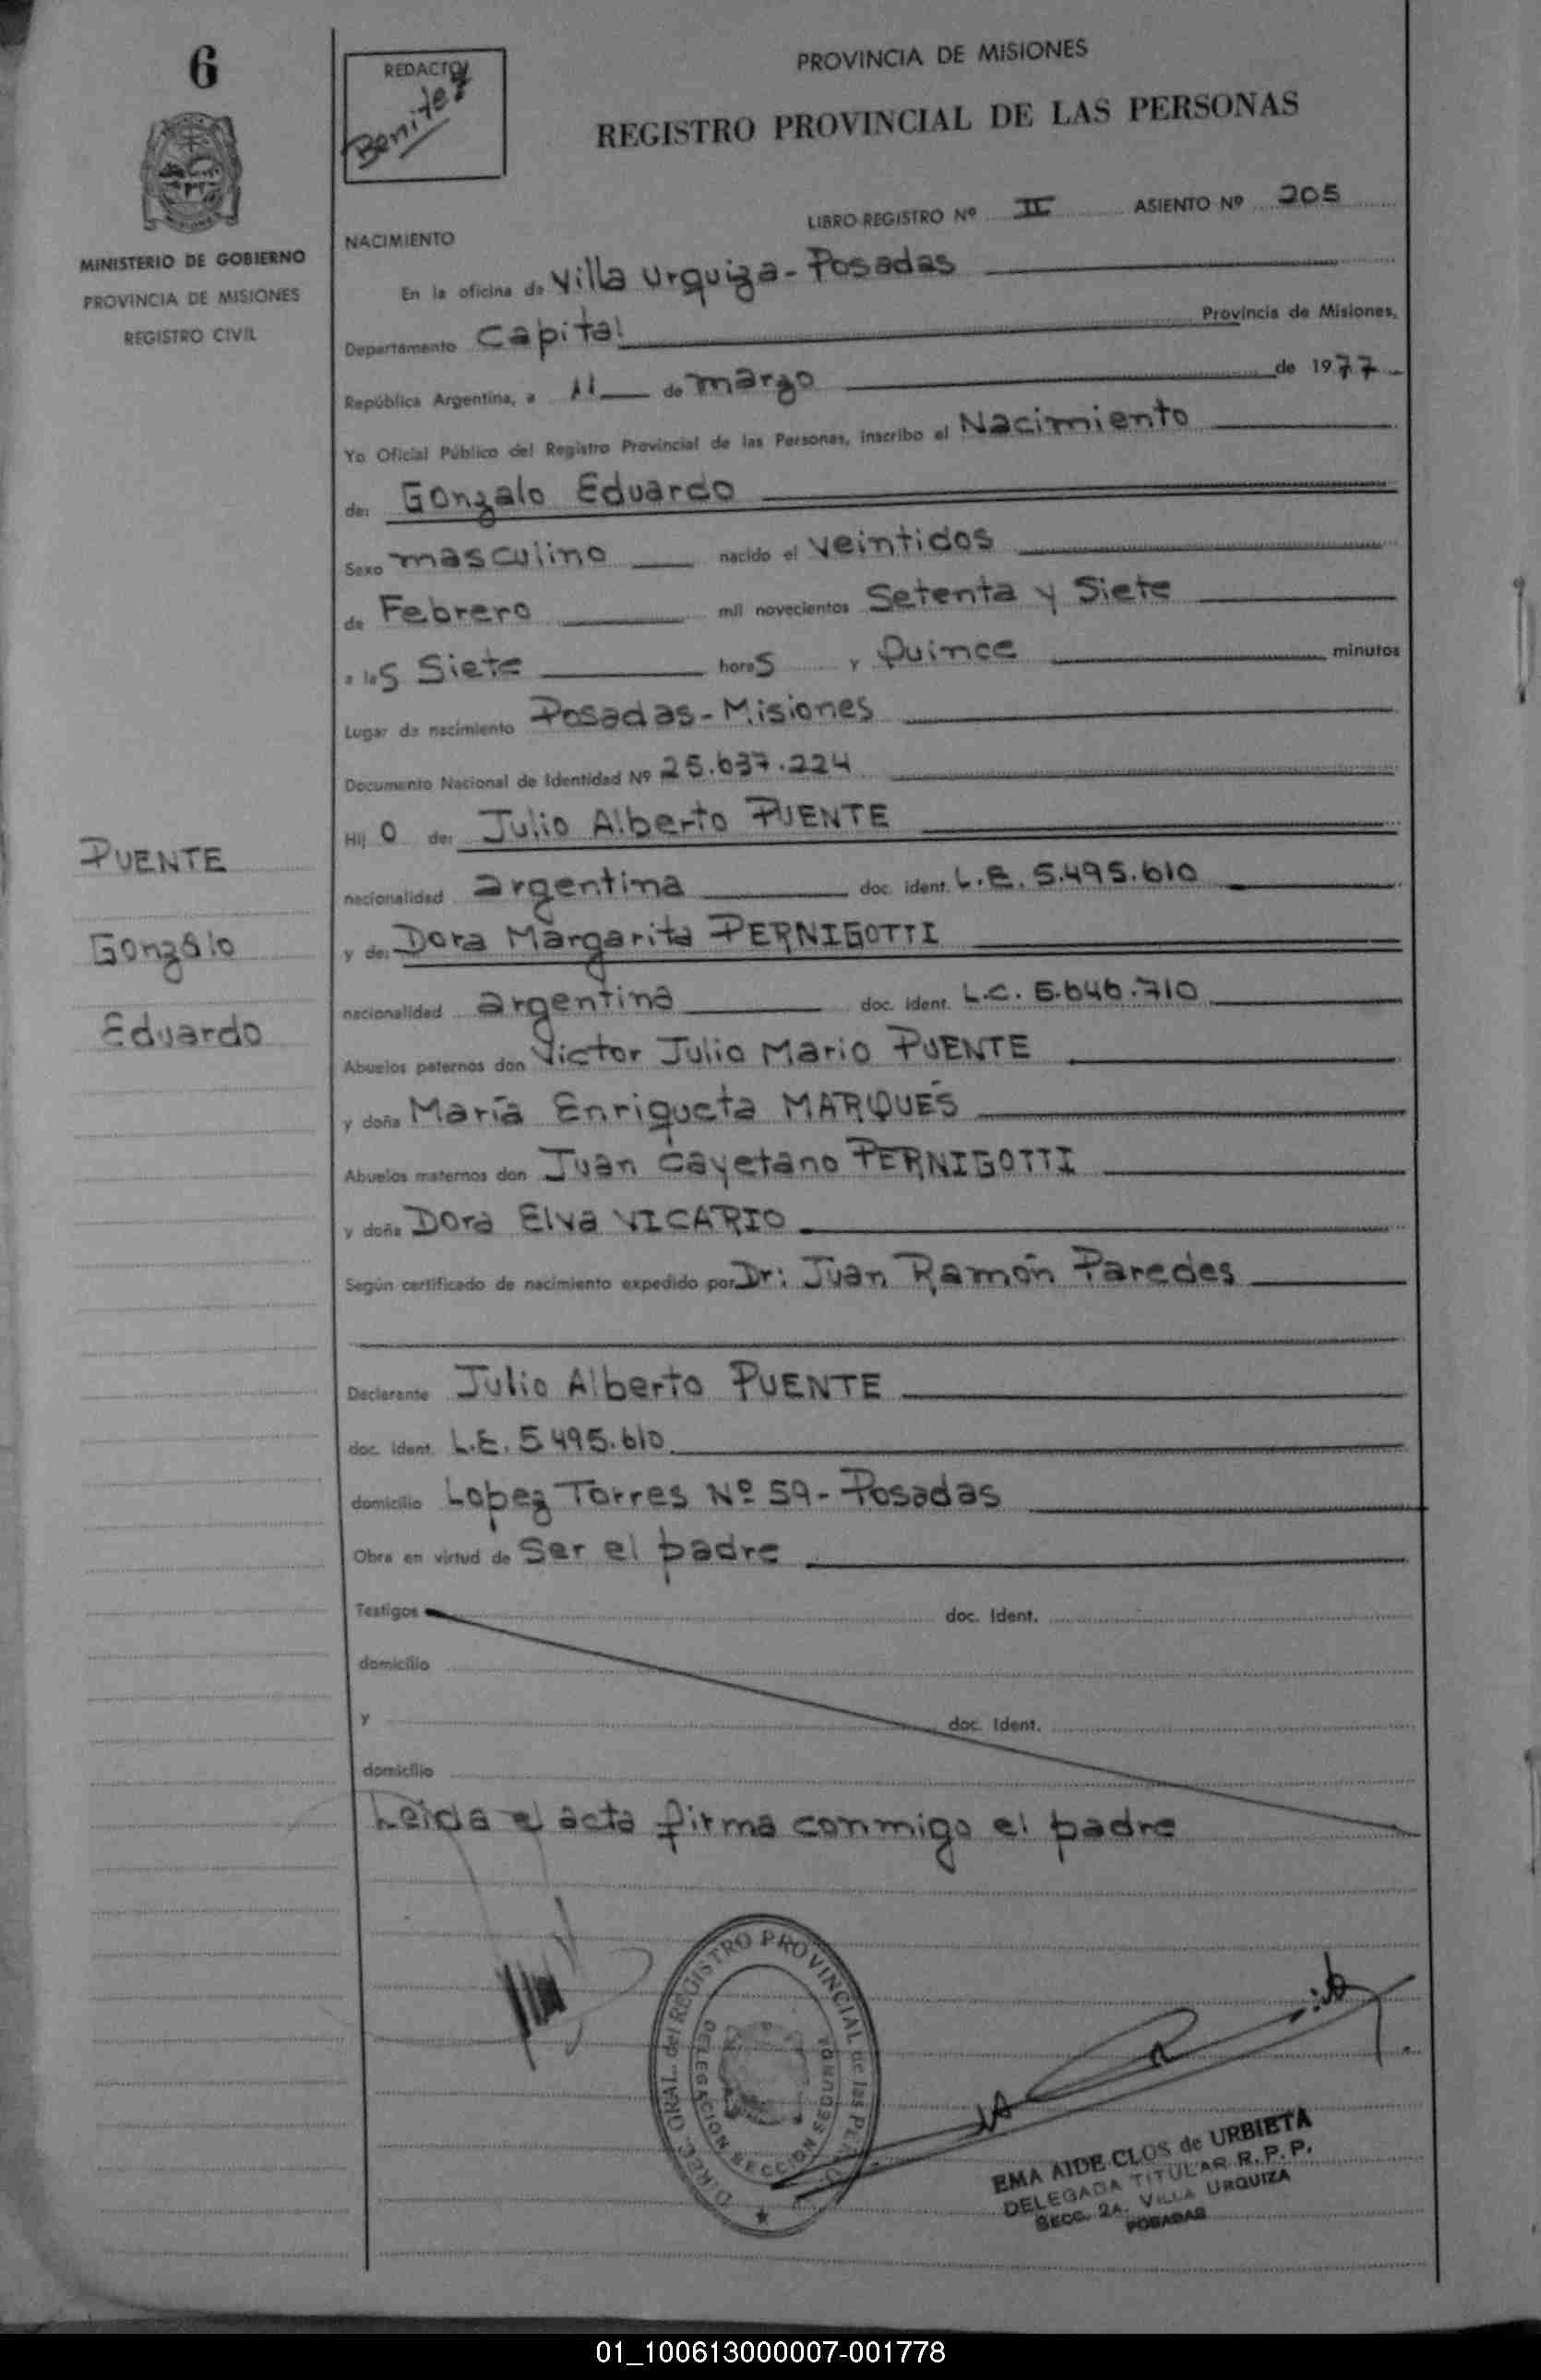 6
REDACTOR
Benitez
PROVINCIA DE MISIONES
REGISTRO PROVINCIAL DE LAS PERSONAS
MINISTERIO DE GOBIERNO
PROVINCIA DE MISIONES
REGISTRO CIVIL
LIBRO REGISTRO Nº II ASIENTO Nº 205
NACIMIENTO
En la oficina de Villa Urquiza - Posadas
Departamento Capital Provincia de Misiones,
República Argentina, a 11 de marzo de 1977
Yo Oficial Público del Registro Provincial de las Personas, inscribo el Nacimiento
de: Gonzalo Eduardo
Sexo masculino nacido el veintidos
de Febrero mil novecientos Setenta y Siete
a las Siete horas y Quince minutos
Lugar de nacimiento Posadas - Misiones
Documento Nacional de Identidad Nº 25.637.224
Hijo de: Julio Alberto PUENTE
nacionalidad argentina doc. ident. L.E. 5.495.610
y de: Dora Margarita PERNIGOTTI
nacionalidad argentina doc. ident. L.C. 5.646.710
Abuelos paternos don Victor Julio Mario PUENTE
y doña María Enriqueta MARQUÉS
Abuelos maternos don Juan Cayetano PERNIGOTTI
y doña Dora Elva VICARIO
Según certificado de nacimiento expedido por Dr: Juan Ramón Paredes
Declarante Julio Alberto PUENTE
doc. ident. L.E. 5.495.610
domicilio Lopez Torres Nº 59 - Posadas
Obra en virtud de Ser el padre
Testigos doc. Ident.
domicilio
y doc. Ident.
domicilio
Leida el acta firma conmigo el padre
PUENTE
Gonzalo
Eduardo
DIREC. GRAL. del REGISTRO PROVINCIAL de las PER
DELEGACION SECCION SEGUNDA
EMA AIDE CLOS de URBIETA
DELEGADA TITULAR R.P.P.
SECC. 2A. VILLA URQUIZA
POSADAS
01_100613000007-001778